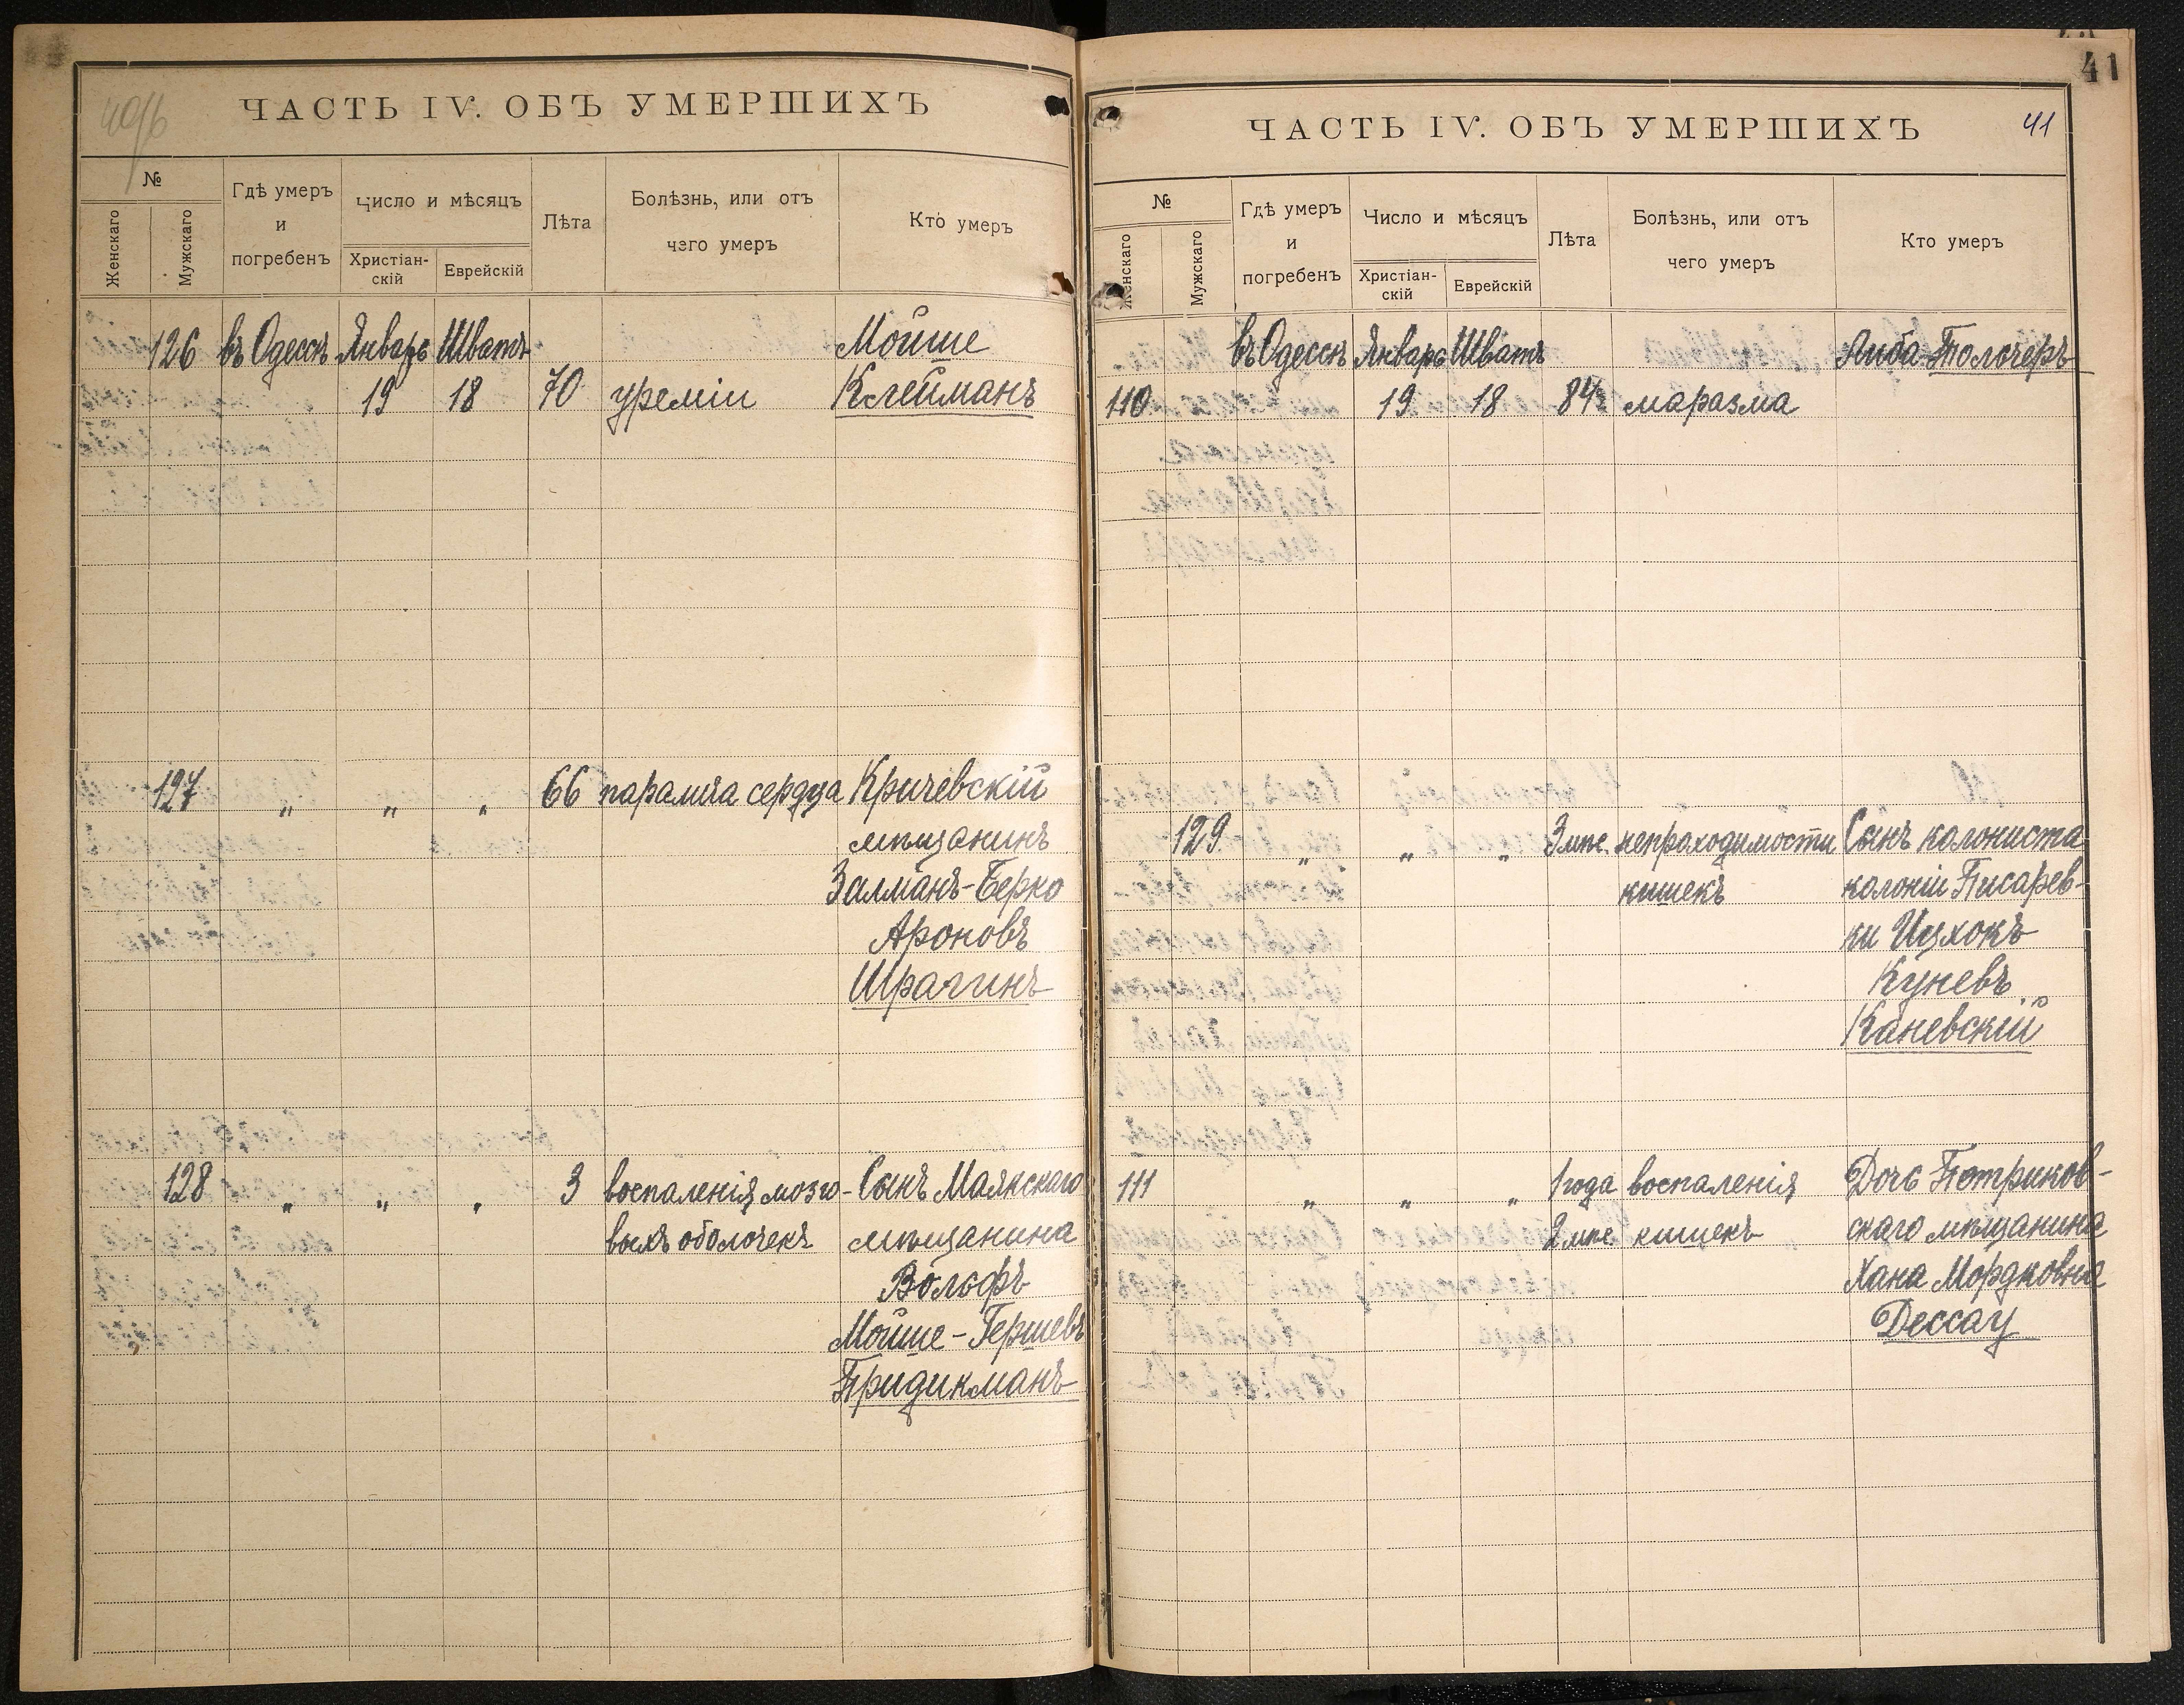 40/б
ЧАСТЬ IV. ОБЪ УМЕРШИХЪ
№
Женскаго
Мужскаго
Гдѣ умеръ
и
погребенъ
Число и мѣсяцъ
Христіан-
скій
Еврейскій
Лѣта
Болѣзнь, или отъ
чего умеръ
Кто умеръ
126 въ Одессѣ Январь Шватъ Мойше
19 18 70 уреміи Клейманъ
127 „ „ „ 66 паралича сердца Кричевскій
мѣщанинъ
Залманъ-Берко
Ароновъ
Шрагинъ
128 „ „ „ 3 воспаленія мозго- Сынъ Маякскаго
выхъ оболочекъ мѣщанина
Вольфъ
Мойше-Гершевъ
Придикманъ
41
ЧАСТЬ IV. ОБЪ УМЕРШИХЪ 41
№
Женскаго
Мужскаго
Гдѣ умеръ
и
погребенъ
Число и мѣсяцъ
Христіан-
скій
Еврейскій
Лѣта
Болѣзнь, или отъ
чего умеръ
Кто умеръ
въ Одессѣ Январь Шватъ Либа Толочеръ
110 19 18 84 маразма
129 „ „ „ 3 мѣс. непроходимости Сынъ колониста
кишекъ колоніи Писарев-
ки Ицхокъ
Куневъ
Каневскій
111 „ „ „ 1 года воспаленія Дочь Петриков-
2 мѣс. кишекъ скаго мѣщанина
Хана Мордковна
Дессау